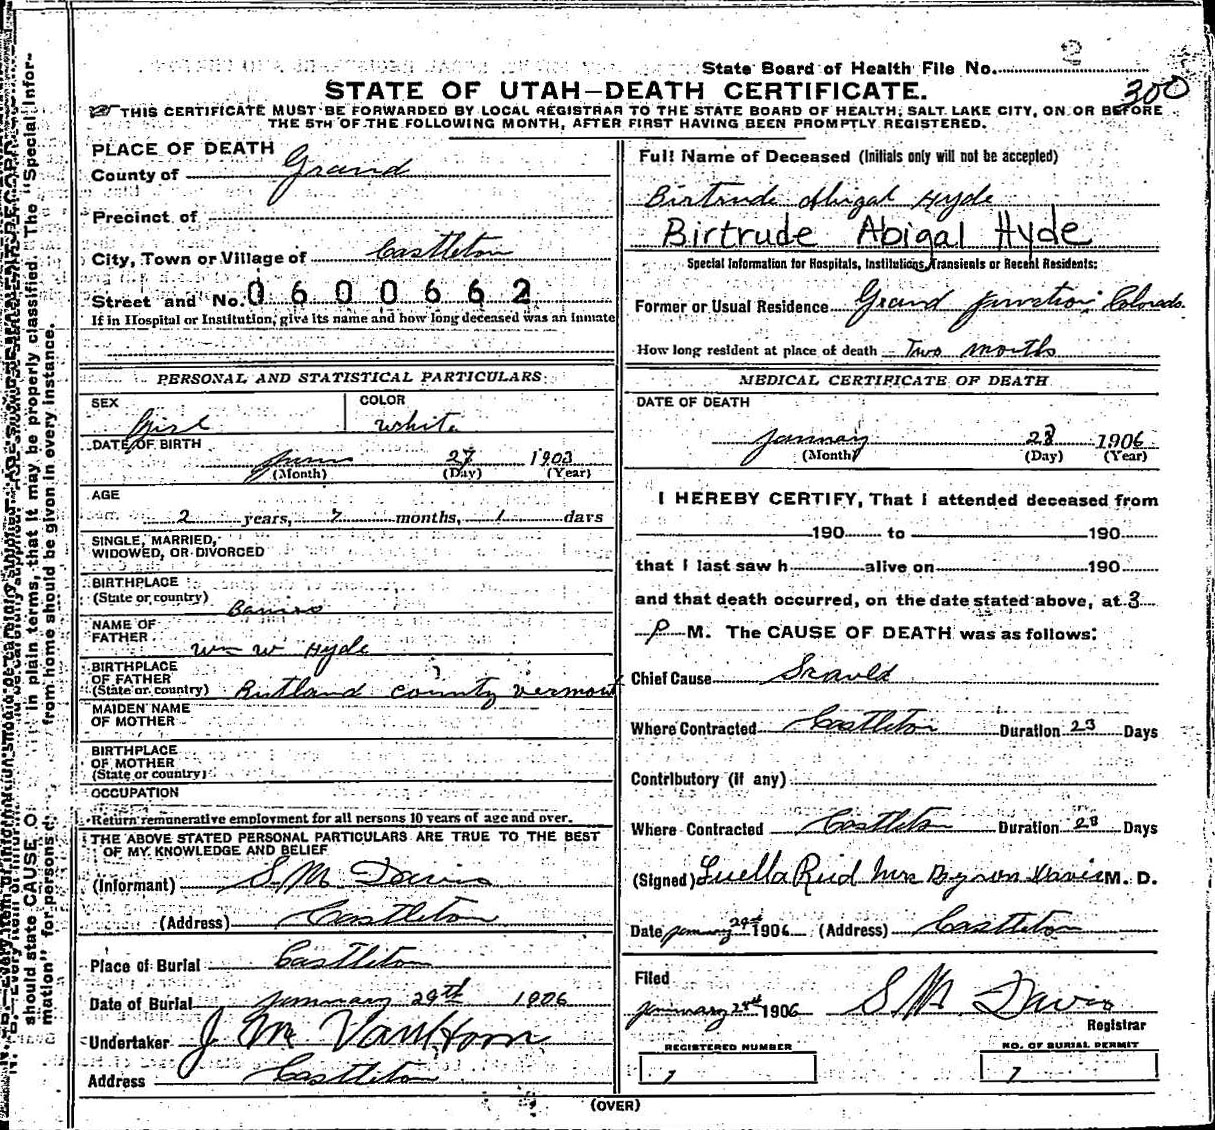 State Board of Health File No. 2
300
STATE OF UTAH—DEATH CERTIFICATE.
THIS CERTIFICATE MUST BE FORWARDED BY LOCAL REGISTRAR TO THE STATE BOARD OF HEALTH, SALT LAKE CITY, ON OR BEFORE
THE 5TH OF THE FOLLOWING MONTH, AFTER FIRST HAVING BEEN PROMPTLY REGISTERED.
PLACE OF DEATH
County of Grand
Precinct of
City, Town or Village of Castleton
Street and No. 0600662
If in Hospital or Institution, give its name and how long deceased was an inmate
PERSONAL AND STATISTICAL PARTICULARS
SEX
Girl
COLOR
White
DATE OF BIRTH
27 1903
(Month) (Day) (Year)
AGE
2 years, 7 months, 1 days
SINGLE, MARRIED,
WIDOWED, OR DIVORCED
BIRTHPLACE
(State or country)
NAME OF
FATHER
Wm W Hyde
BIRTHPLACE
OF FATHER
(State or country) Rutland county Vermont
MAIDEN NAME
OF MOTHER
BIRTHPLACE
OF MOTHER
(State or country)
OCCUPATION
Return remunerative employment for all persons 10 years of age and over.
THE ABOVE STATED PERSONAL PARTICULARS ARE TRUE TO THE BEST
OF MY KNOWLEDGE AND BELIEF
(Informant) S. M. Davis
(Address) Castleton
Place of Burial Castleton
Date of Burial January 29th 1906
Undertaker J M VanHorn
Address Castleton
Full Name of Deceased (Initials only will not be accepted)
Birtrude Abigal Hyde
Birtrude Abigal Hyde
Special Information for Hospitals, Institutions, Transients or Recent Residents:
Former or Usual Residence Grand Junction Colorado.
How long resident at place of death Two months
MEDICAL CERTIFICATE OF DEATH
DATE OF DEATH
January 28 1906
(Month) (Day) (Year)
I HEREBY CERTIFY, That I attended deceased from
190 to 190
that I last saw h alive on 190
and that death occurred, on the date stated above, at 3
P M. The CAUSE OF DEATH was as follows:
Chief Cause
Where Contracted Castleton Duration 23 Days
Contributory (if any)
Where Contracted Castleton Duration Days
(Signed) Luella Reid Mrs Byron Davis M. D.
Date January 1906 (Address) Castleton
Filed
January 1906 S. M. Davis
Registrar
REGISTERED NUMBER
1
NO. OF BURIAL PERMIT
1
(OVER)
should state CAUSE O in plain terms, that it may be properly classified. The "Special Infor-
mation" for persons d from home should be given in every instance.